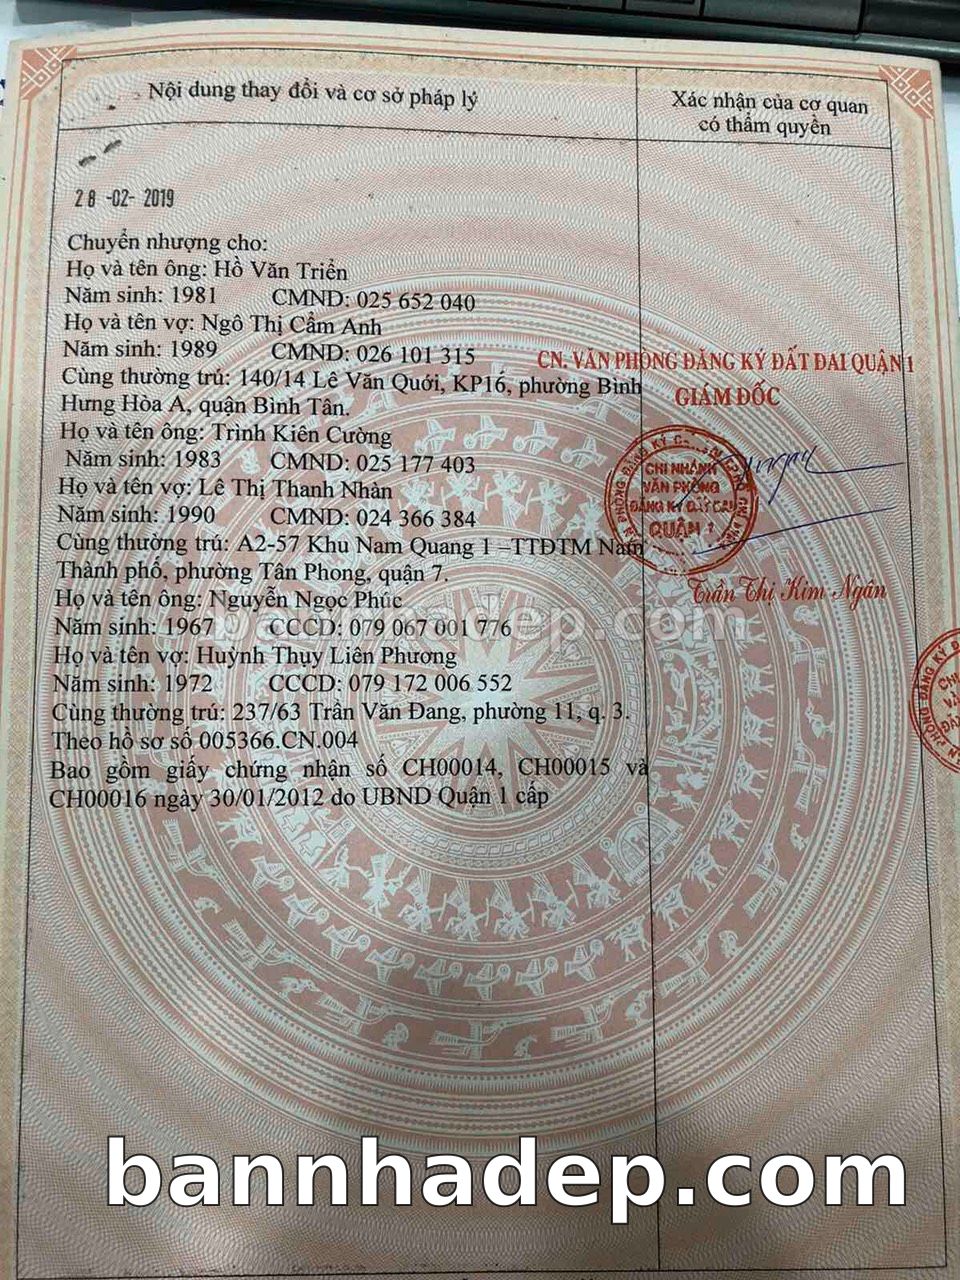 Nội dung thay đổi và cơ sở pháp lý
Xác nhận của cơ quan
có thẩm quyền
28 -02- 2019
Chuyển nhượng cho:
Họ và tên ông: Hồ Văn Triển
Năm sinh: 1981 CMND: 025 652 040
Họ và tên vợ: Ngô Thị Cẩm Anh
Năm sinh: 1989 CMND: 026 101 315
Cùng thường trú: 140/14 Lê Văn Quới, KP16, phường Bình
Hưng Hòa A, quận Bình Tân.
Họ và tên ông: Trình Kiên Cường
Năm sinh: 1983 CMND: 025 177 403
Họ và tên vợ: Lê Thị Thanh Nhàn
Năm sinh: 1990 CMND: 024 366 384
Cùng thường trú: A2-57 Khu Nam Quang 1 –TTĐTM Nam
Thành phố, phường Tân Phong, quận 7.
Họ và tên ông: Nguyễn Ngọc Phúc
Năm sinh: 1967 CCCD: 079 067 001 776
Họ và tên vợ: Huỳnh Thụy Liên Phương
Năm sinh: 1972 CCCD: 079 172 006 552
Cùng thường trú: 237/63 Trần Văn Đang, phường 11, q. 3.
Theo hồ sơ số 005366.CN.004
Bao gồm giấy chứng nhận số CH00014, CH00015 và
CH00016 ngày 30/01/2012 do UBND Quận 1 cấp
CN. VĂN PHÒNG ĐĂNG KÝ ĐẤT ĐAI QUẬN 1
GIÁM ĐỐC
CHI NHÁNH
VĂN PHÒNG
ĐĂNG KÝ ĐẤT ĐAI
QUẬN 1
Trần Thị Kim Ngân
bannhadep.com
bannhadep.com